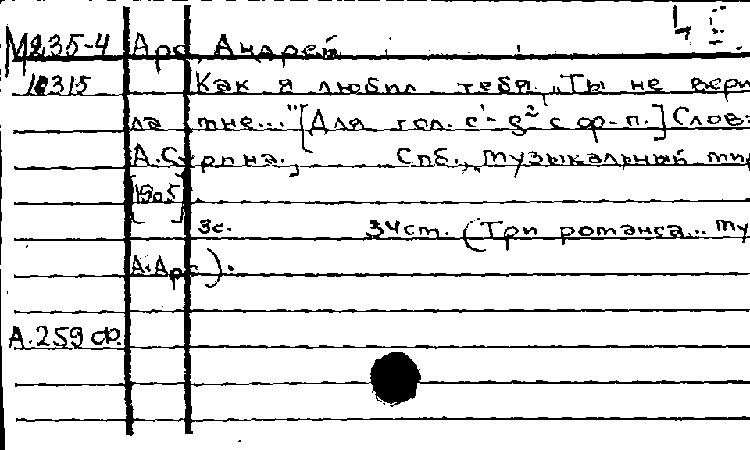 М235-4 Арс, Андрей 4
10315 Как я любил тебя. „Ты не вери
ла мне..." [Для гол. c¹-g² с ф-п.] Слова
А. Сурина., Спб., Музыкальный мир
[1905]
3с. 34ст. (Три романса... Му
А. Арс).
А.259 ф.